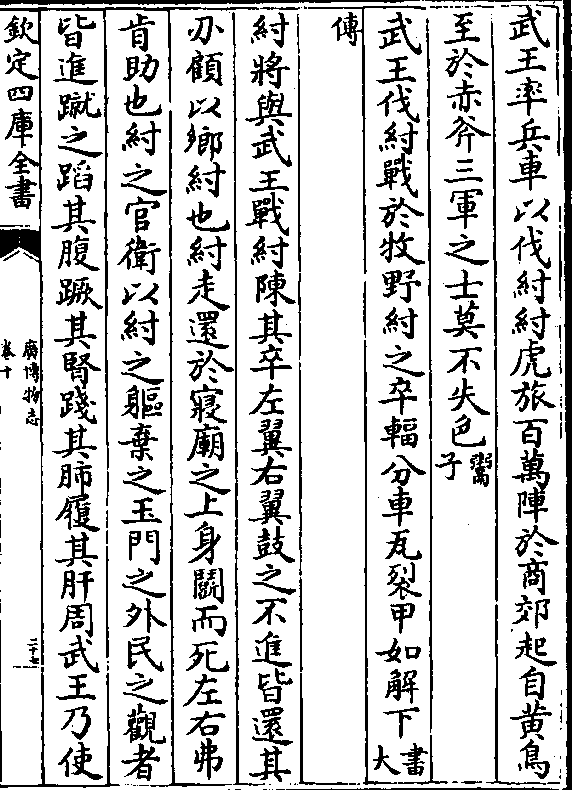 武王率兵車以伐紂紂虎旅百萬陣於商郊起自黄鳥
至於赤斧三軍之士莫不失色鬻子
武王伐紂戰於牧野紂之卒輻分車瓦裂甲如解下書大
傳
紂將與武王戰紂陳其卒左翼右翼鼓之不進皆還其
刃顧以鄉紂也紂走還於寢廟之上身鬬而死左右弗
肯助也紂之官衛以紂之軀棄之玉門之外民之觀者
皆進蹴之蹈其腹蹶其腎踐其肺履其肝周武王乃使
欽定四庫全書
廣博物志
卷十
二十七